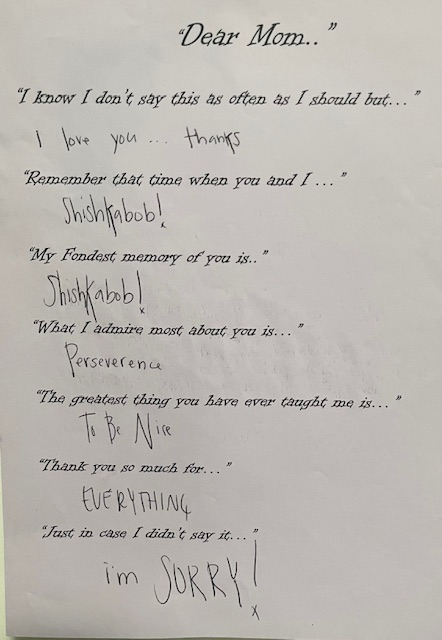 "Dear Mom.."
"I know I don't say this as often as I should but..."
I love you ... thanks
"Remember that time when you and I ..."
Shishkabob!
"My Fondest memory of you is.."
Shishkabob!
"What I admire most about you is..."
Perseverence
"The greatest thing you have ever taught me is..."
To Be Nice
"Thank you so much for..."
EVERYTHING
"Just in case I didn't say it..."
i'm SORRY!